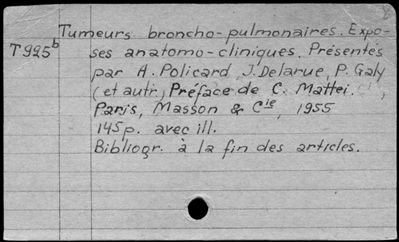 Tumeurs broncho-pulmonaires. Expo-
T925b ses anatomo-cliniques. Présentés
par A. Policard, J. Delarue, P. Galy
(et autr.) Préface de C. Mattei.
Paris, Masson & Cie, 1955
145p. avec ill.
Bibliogr. à la fin des articles.